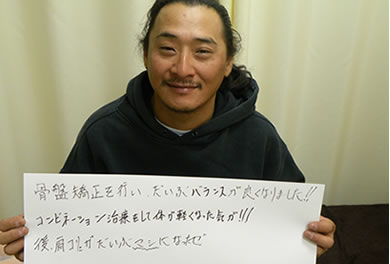 骨盤矯正を行い、だいぶバランスが良くなりました!!
コンビネーション治療をして体が軽くなった気が!!!
後、肩コリがだいぶマシになったぜ